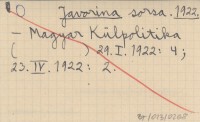 Javorina sorsa. 1922.
– Magyar Külpolitika
( ) 29. I. 1922: 4;
23. IV. 1922: 2.